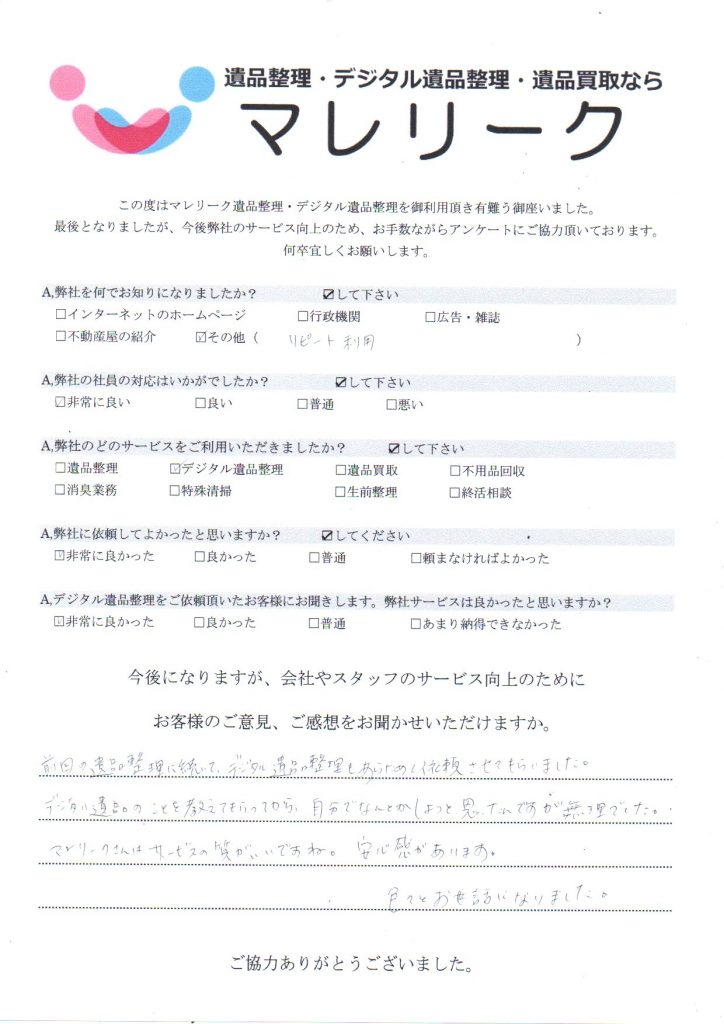 遺品整理・デジタル遺品整理・遺品買取なら
マレリーク
この度はマレリーク遺品整理・デジタル遺品整理を御利用頂き有難う御座いました。
最後となりましたが、今後弊社のサービス向上のため、お手数ながらアンケートにご協力頂いております。
何卒宜しくお願いします。
A,弊社を何でお知りになりましたか？ ☑して下さい
☐インターネットのホームページ ☐行政機関 ☐広告・雑誌
☐不動産屋の紹介 ☑その他（ リピート利用 ）
A,弊社の社員の対応はいかがでしたか？ ☑して下さい
☑非常に良い ☐良い ☐普通 ☐悪い
A,弊社のどのサービスをご利用いただきましたか？ ☑して下さい
☐遺品整理 ☑デジタル遺品整理 ☐遺品買取 ☐不用品回収
☐消臭業務 ☐特殊清掃 ☐生前整理 ☐終活相談
A,弊社に依頼してよかったと思いますか？ ☑してください
☑非常に良かった ☐良かった ☐普通 ☐頼まなければよかった
A,デジタル遺品整理をご依頼頂いたお客様にお聞きします。弊社サービスは良かったと思いますか？
☑非常に良かった ☐良かった ☐普通 ☐あまり納得できなかった
今後になりますが、会社やスタッフのサービス向上のために
お客様のご意見、ご感想をお聞かせいただけますか。
前回の遺品整理に続いて、デジタル遺品整理もあらためて依頼させてもらいました。
デジタル遺品のことを教えてもらってから、自分でなんとかしようと思ったんですが無理でした。
マレリークさんはサービスの質がいいですね。安心感があります。
色々とお世話になりました。
ご協力ありがとうございました。